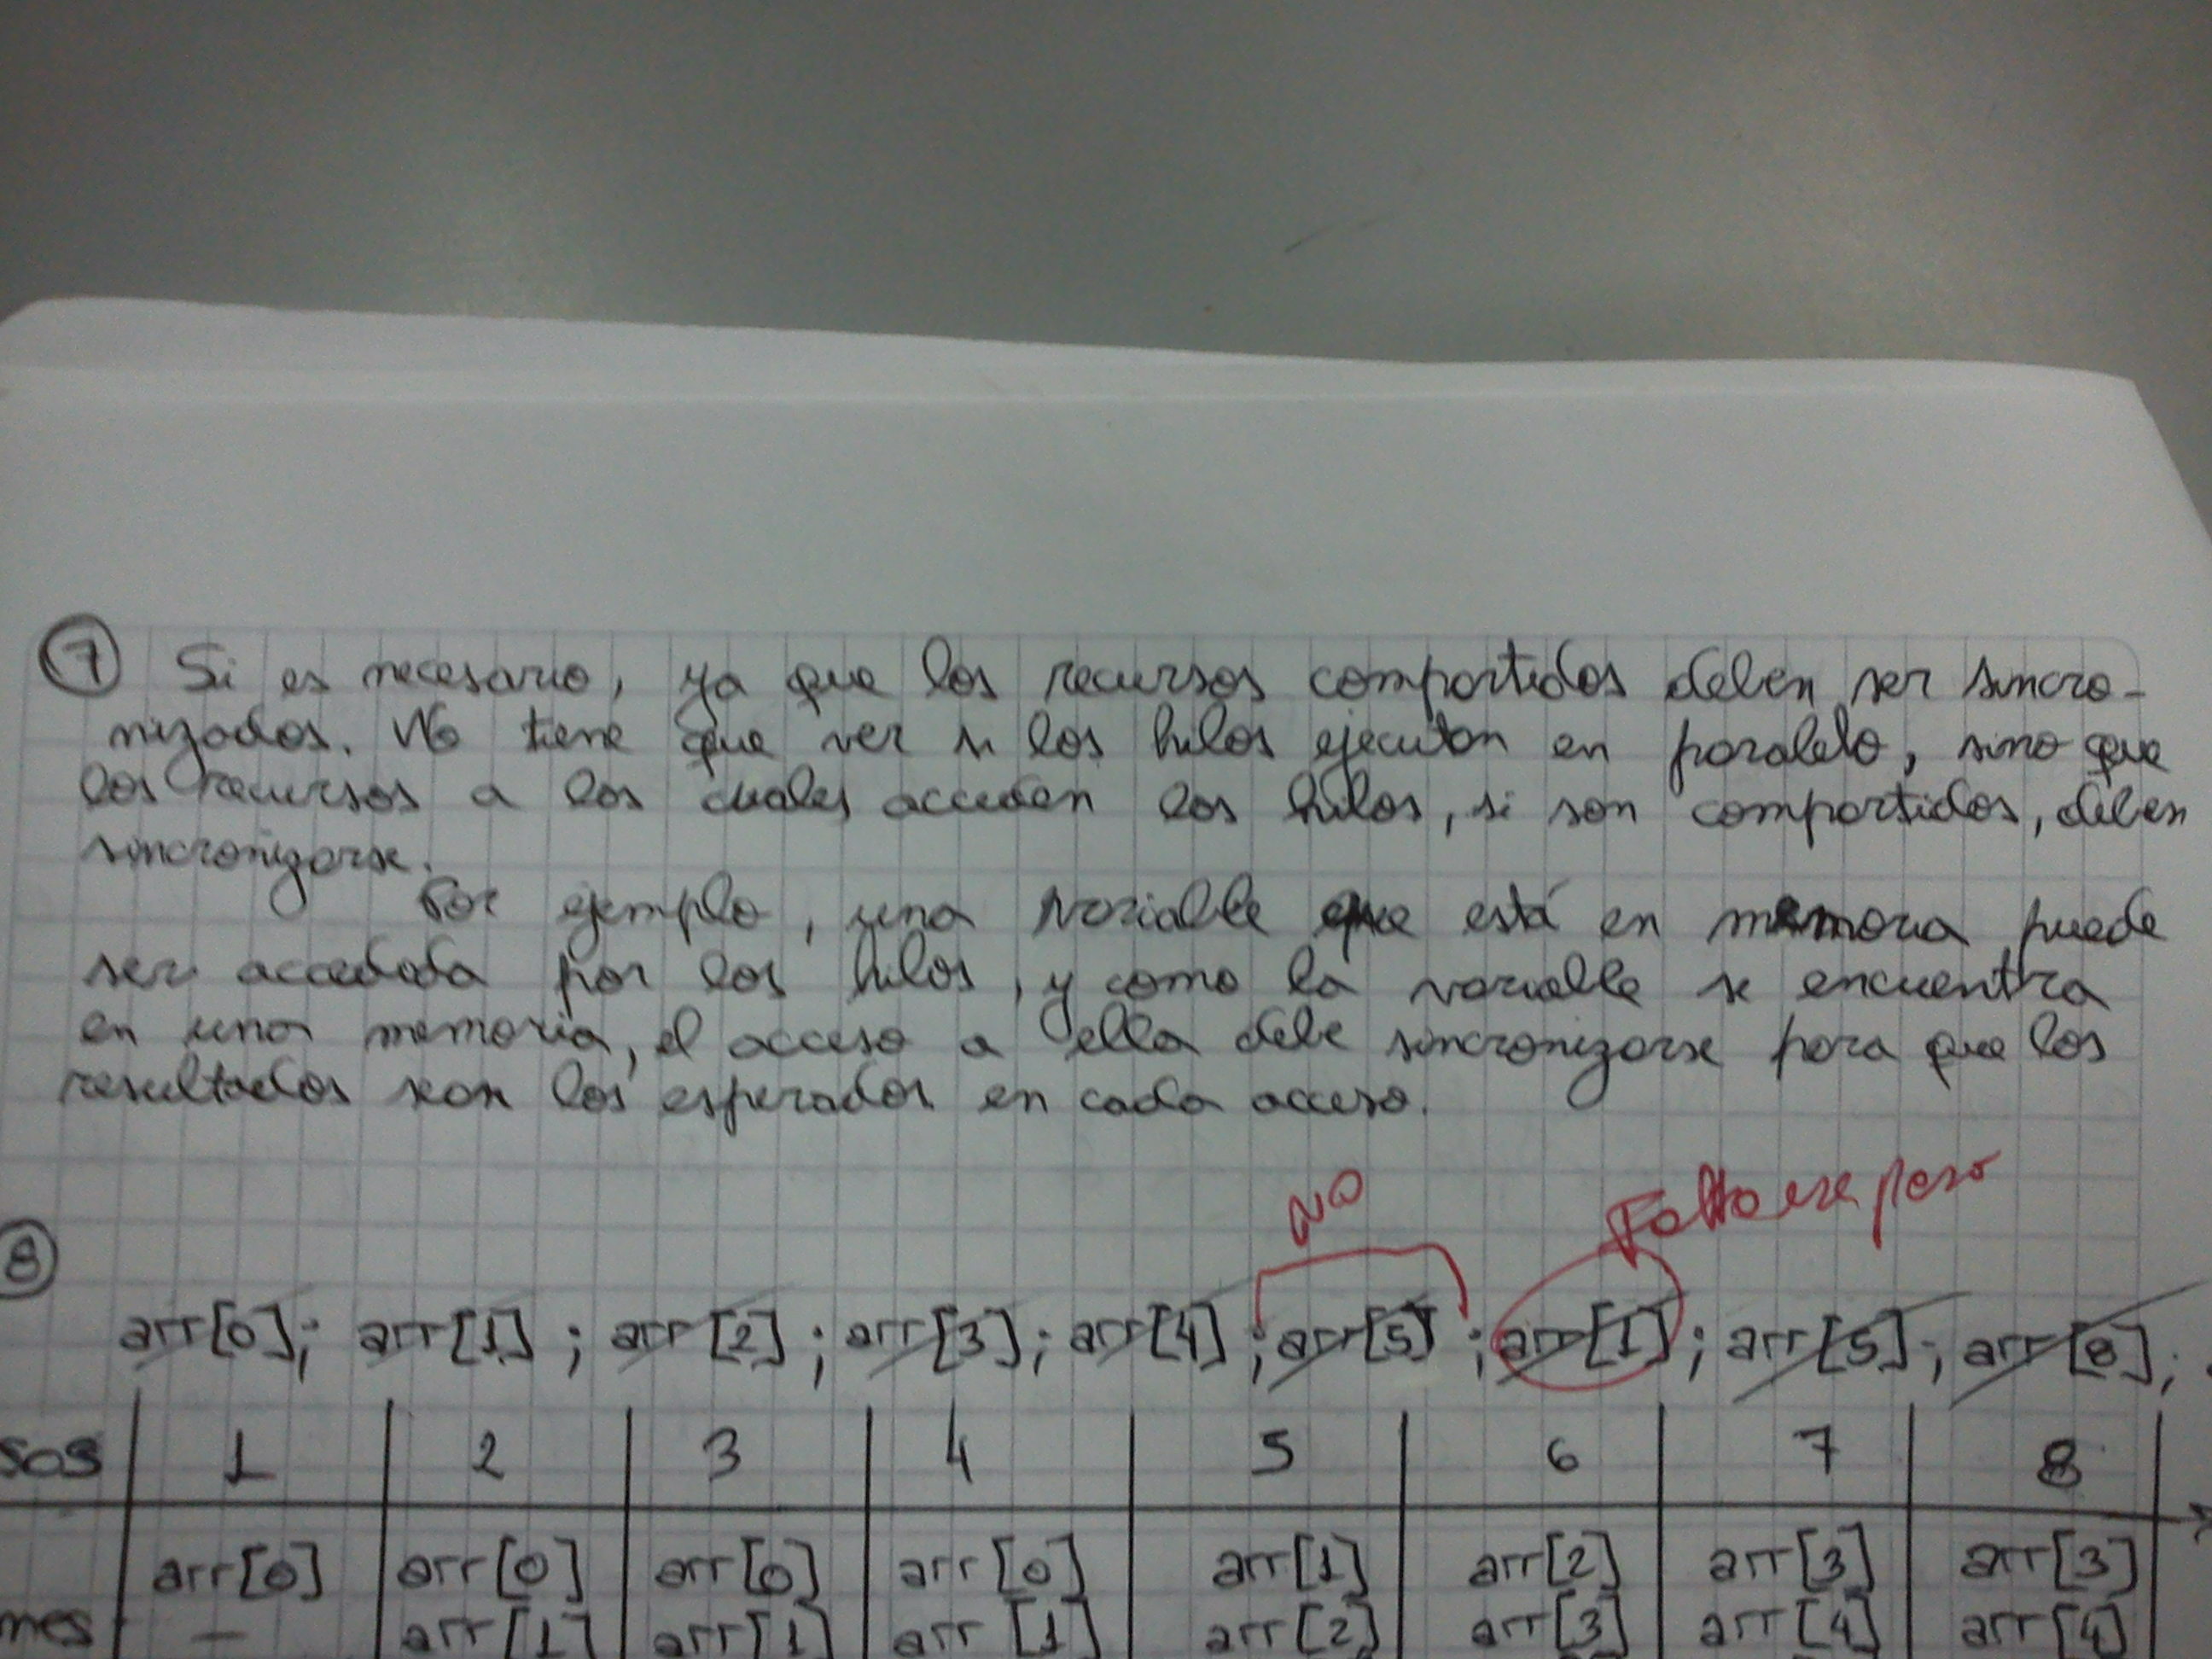 7 Si es necesario, ya que los recursos compartidos deben ser sincro-
nizados. No tiene que ver si los hilos ejecutan en paralelo, sino que
los recursos a los cuales acceden los hilos, si son compartidos, deben
sincronizarse.
Por ejemplo, una variable que está en memoria puede
ser accedida por los hilos, y como la variable se encuentra
en una memoria, el acceso a ella debe sincronizarse para que los
resultados sean los esperados en cada acceso.
NO Falta ese paso
8
arr[0]; arr[1]; arr[2]; arr[3]; arr[4]; arr[5]; arr[1]; arr[5]; arr[8];
sos 1 2 3 4 5 6 7 8
arr[0] arr[0] arr[0] arr[0] arr[1] arr[2] arr[3] arr[3]
nes — arr[1] arr[1] arr[1] arr[2] arr[3] arr[4] arr[4]